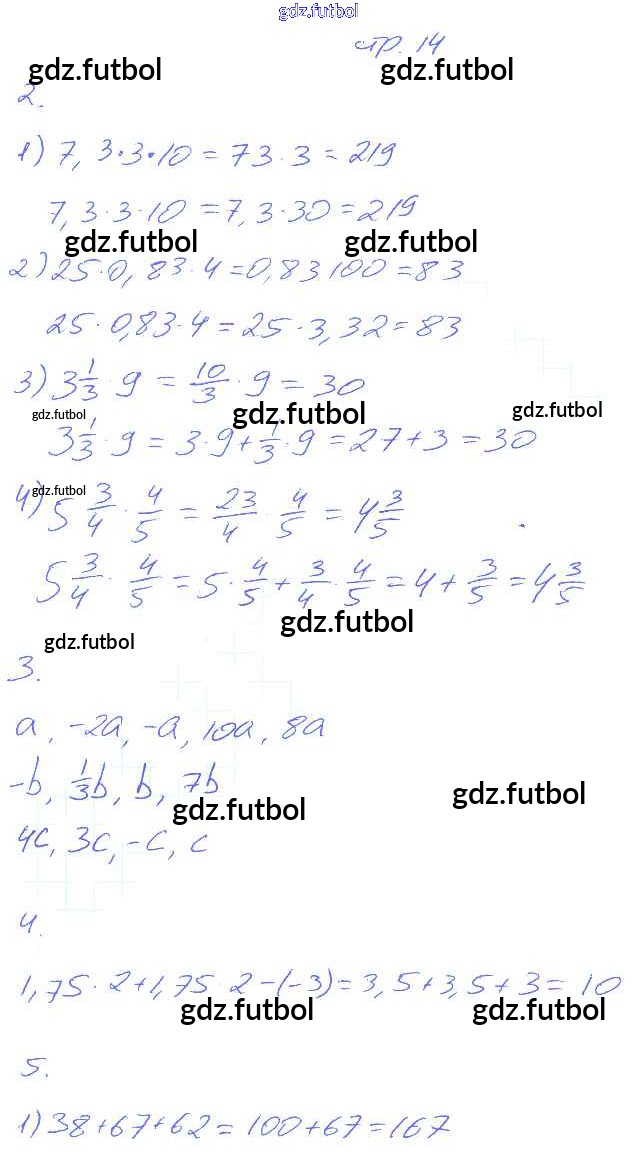 gdz.futbol
стр. 14
gdz.futbol gdz.futbol
2.
1) 7,3·3·10 = 73·3 = 219
7,3·3·10 = 7,3·30 = 219
gdz.futbol gdz.futbol
2) 25·0,83·4 = 0,83 100 = 83
25·0,83·4 = 25·3,32 = 83
3) 3 1/3 · 9 = 10/3 · 9 = 30
gdz.futbol gdz.futbol gdz.futbol
3 1/3 · 9 = 3·9 + 1/3 · 9 = 27 + 3 = 30
gdz.futbol
4) 5 3/4 · 4/5 = 23/4 · 4/5 = 4 3/5
5 3/4 · 4/5 = 5 · 4/5 + 3/4 · 4/5 = 4 + 3/5 = 4 3/5
gdz.futbol
gdz.futbol
3.
a, -2a, -a, 10a, 8a
-b, 1/3b, b, 7b
gdz.futbol gdz.futbol
4c, 3c, -c, c
4.
1,75·2+1,75·2-(-3) = 3,5+3,5+3 = 10
gdz.futbol gdz.futbol
5.
1) 38+67+62 = 100+67 = 167